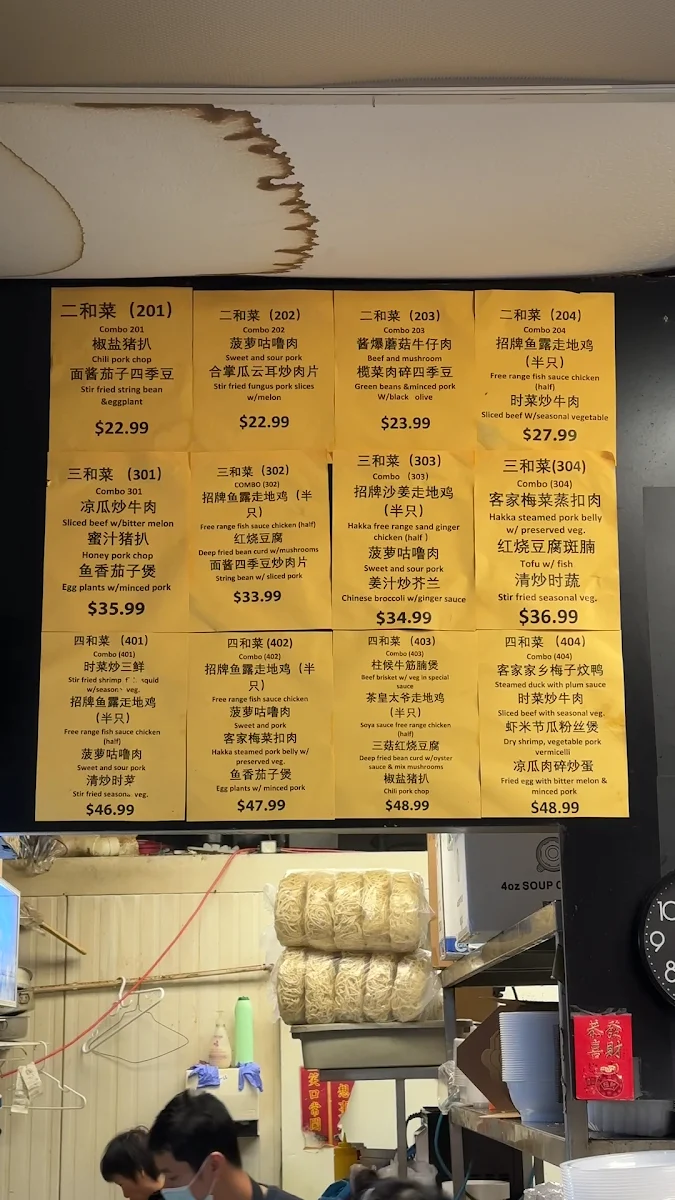 二和菜（201）
Combo 201
椒盐猪扒
Chili pork chop
面酱茄子四季豆
Stir fried string bean
&eggplant
$22.99
二和菜（202）
Combo 202
菠萝咕噜肉
Sweet and sour pork
合掌瓜云耳炒肉片
Stir fried fungus pork slices
w/melon
$22.99
二和菜（203）
Combo 203
酱爆蘑菇牛仔肉
Beef and mushroom
榄菜肉碎四季豆
Green beans &minced pork
W/black olive
$23.99
二和菜（204）
Combo 204
招牌鱼露走地鸡
（半只）
Free range fish sauce chicken
(half)
时菜炒牛肉
Sliced beef W/seasonal vegetable
$27.99
三和菜（301）
Combo 301
凉瓜炒牛肉
Sliced beef w/bitter melon
蜜汁猪扒
Honey pork chop
鱼香茄子煲
Egg plants w/minced pork
$35.99
三和菜（302）
COMBO (302)
招牌鱼露走地鸡（半
只）
Free range fish sauce chicken (half)
红烧豆腐
Deep fried bean curd w/mushrooms
面酱四季豆炒肉片
String bean w/ sliced pork
$33.99
三和菜（303）
Combo （303）
招牌沙姜走地鸡
（半只）
Hakka free range sand ginger
chicken (half )
菠萝咕噜肉
Sweet and sour pork
姜汁炒芥兰
Chinese broccoli w/ginger sauce
$34.99
三和菜(304)
Combo (304)
客家梅菜蒸扣肉
Hakka steamed pork belly
w/ preserved veg.
红烧豆腐斑腩
Tofu w/ fish
清炒时蔬
Stir fried seasonal veg.
$36.99
四和菜（401）
Combo (401)
时菜炒三鲜
Stir fried shrimp squid
w/season veg.
招牌鱼露走地鸡
（半只）
Free range fish sauce chicken
(half)
菠萝咕噜肉
Sweet and sour pork
清炒时菜
Stir fried season veg.
$46.99
四和菜（402）
Combo (402)
招牌鱼露走地鸡（半
只）
Free range fish sauce chicken
菠萝咕噜肉
Sweet and pork
客家梅菜扣肉
Hakka steamed pork belly w/
preserved veg.
鱼香茄子煲
Egg plants w/ minced pork
$47.99
四和菜（403）
Combo (403)
柱候牛筋腩煲
Beef brisket w/ veg in special
sauce
茶皇太爷走地鸡
（半只）
Soya sauce free range chicken
(half)
三菇红烧豆腐
Deep fried bean curd w/oyster
sauce & mix mushrooms
椒盐猪扒
Chili pork chop
$48.99
四和菜（404）
Combo (404)
客家家乡梅子炆鸭
Steamed duck with plum sauce
时菜炒牛肉
Sliced beef with seasonal veg.
虾米节瓜粉丝煲
Dry shrimp, vegetable pork
vermicelli
凉瓜肉碎炒蛋
Fried egg with bitter melon &
minced pork
$48.99
4oz SOUP
10
9
8
恭喜
發财